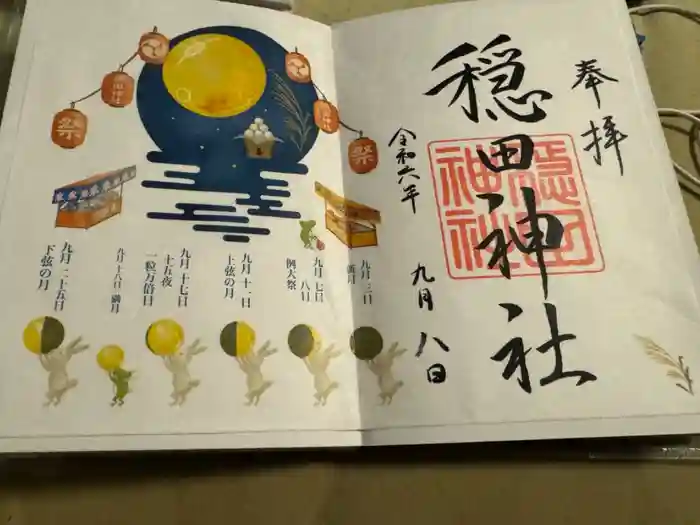 奉拝
穏田神社
穏田
神社
令和六年
九月八日
祭
祭
九月三日
新月
九月七日
八日
例大祭
九月十一日
上弦の月
九月十七日
十五夜
一粒万倍日
九月十八日 満月
九月二十五日
下弦の月